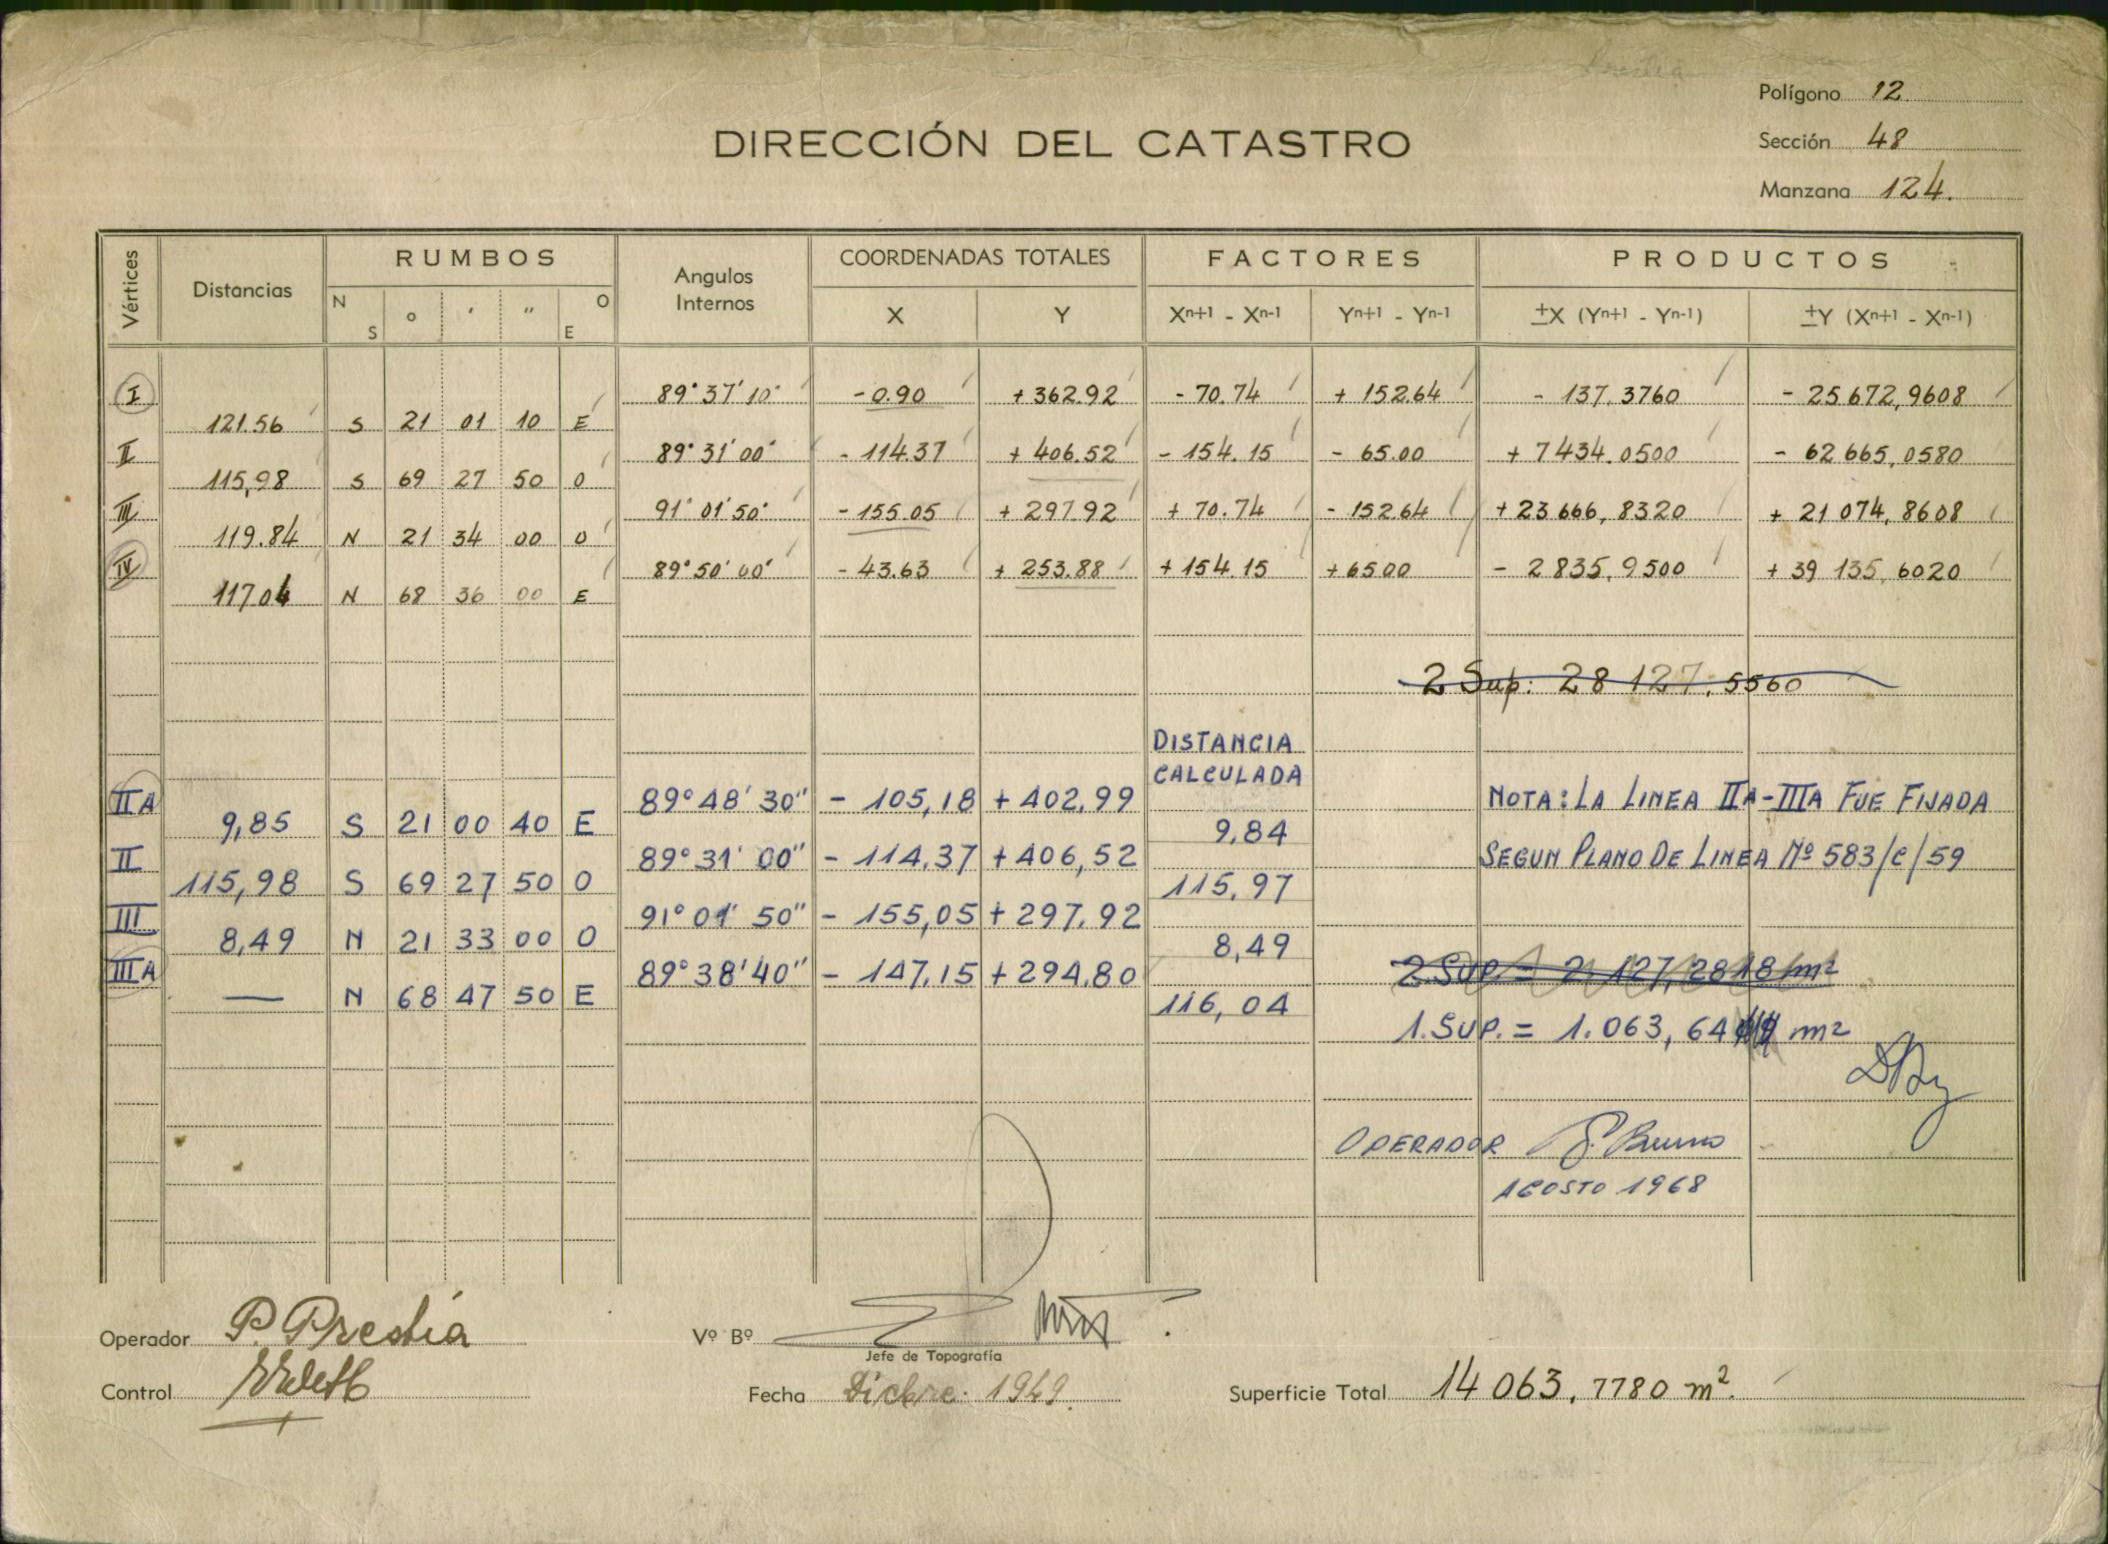 Polígono 12
DIRECCIÓN DEL CATASTRO
Sección 48
Manzana 124.
Vértices Distancias RUMBOS Angulos Internos COORDENADAS TOTALES FACTORES PRODUCTOS
N S o ' " O E X Y Xn+1 - Xn-1 Yn+1 - Yn-1 ±X (Yn+1 - Yn-1) ±Y (Xn+1 - Xn-1)
I 89° 37' 10" - 0.90 + 362.92 - 70.74 + 152.64 - 137.3760 - 25 672,9608
121.56 S 21 01 10 E
II 89° 31' 00" - 114.37 + 406.52 - 154.15 - 65.00 + 7434.0500 - 62 665,0580
115,98 S 69 27 50 O
III 91° 01' 50" - 155.05 + 297.92 + 70.74 - 152.64 + 23 666,8320 + 21 074,8608
119.84 N 21 34 00 O
IV 89° 50' 00" - 43.63 + 253.88 + 154.15 + 65.00 - 2 835,9500 + 39 135,6020
117.04 N 68 36 00 E
2 Sup: 28 127.5560
DISTANCIA
CALCULADA
IIA 89° 48' 30" - 105,18 + 402,99 NOTA: LA LINEA IIA-IIIA FUE FIJADA
9,85 S 21 00 40 E 9,84
II 89° 31' 00" - 114,37 + 406,52 SEGUN PLANO DE LINEA Nº 583/C/59
115,98 S 69 27 50 O 115,97
III 91° 01' 50" - 155,05 + 297,92
8,49 N 21 33 00 O 8,49
IIIA 89° 38' 40" - 147,15 + 294,80 2.SUP. = 2.127,2818 m2
— N 68 47 50 E 116,04
1.SUP. = 1.063,64 m2
OPERADOR Bruno
AGOSTO 1968
Operador P. Prestía
Vº Bº
Jefe de Topografía
Control
Fecha Dicbre. 1949.
Superficie Total 14 063,7780 m2.